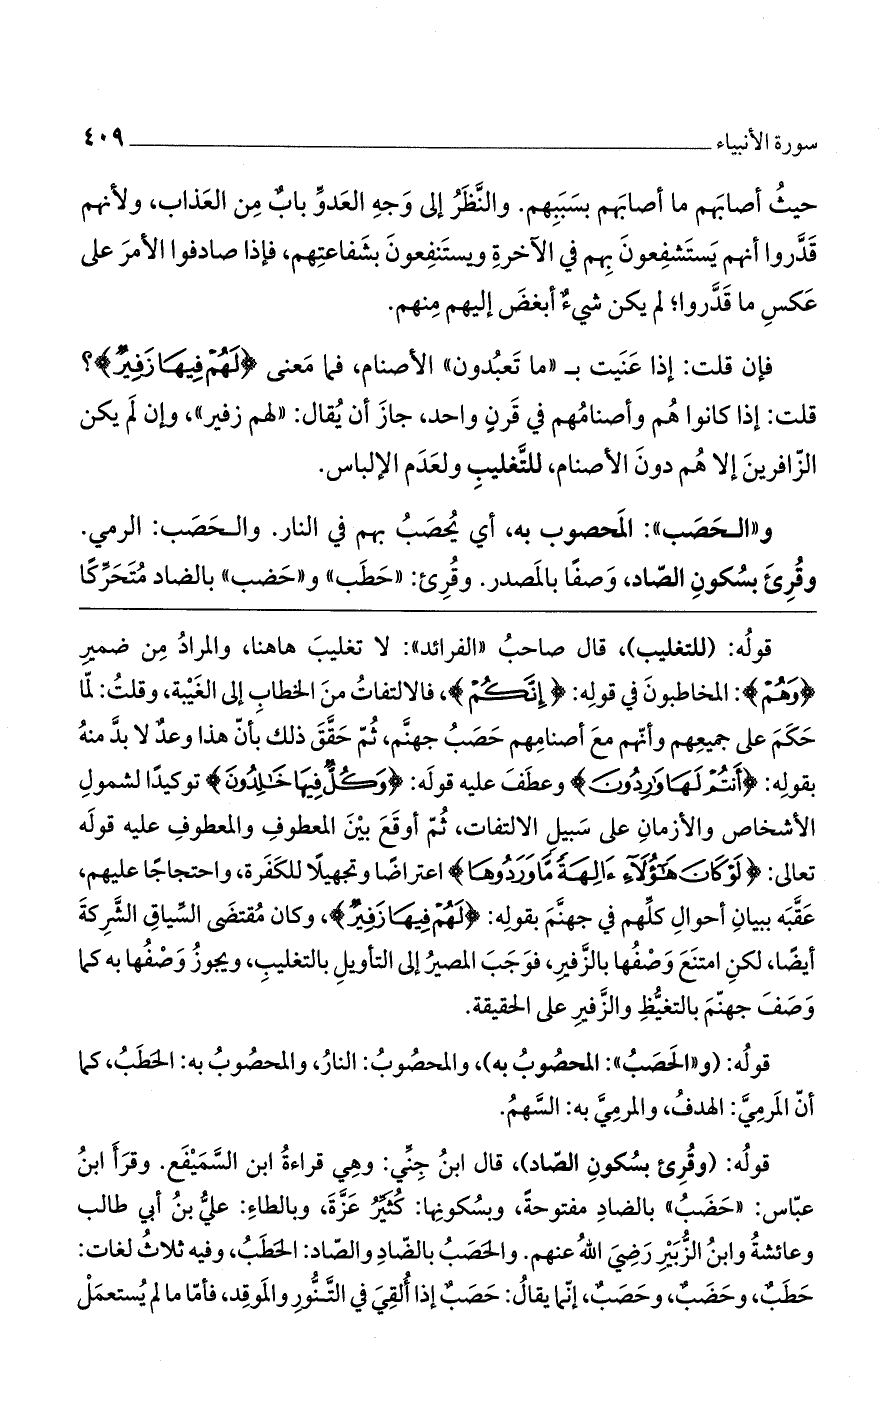 سورة الأنبياء ٤٠٩
حيثُ أصابَهم ما أصابَهم بسَبَبِهم. والنَّظَرُ إلى وَجهِ العَدوِّ بابٌ مِن العَذاب، ولأنهم
قَدَّروا أنهم يَستَشفِعونَ بِهم في الآخرةِ ويستَنفِعونَ بشَفاعتِهم، فإذا صادفوا الأمرَ على
عَكسِ ما قَدَّروا؛ لم يكن شيءٌ أبغضَ إليهم مِنهم.
فإن قلت: إذا عَنَيت بـ «ما تَعبُدون» الأصنام، فما مَعنى ﴿لَهُمْ فِيهَا زَفِيرٌ﴾؟
قلت: إذا كانوا هُم وأصنامُهم في قَرنٍ واحد، جازَ أن يُقال: «لهم زفير»، وإن لَم يكن
الزّافرينَ إلا هُم دونَ الأصنام، للتَّغليبِ ولعَدَم الإلباس.
و«الـحَصَب»: المَحصوب به، أي يُحصَبُ بهم في النار. والـحَصَب: الرمي.
وقُرِئَ بسُكونِ الصّاد، وَصفًا بالمَصدر. وقُرِئ: «حَطَب» و«حَضب» بالضاد مُتَحَرِّكًا
قولُه: (للتغليب)، قال صاحبُ «الفرائد»: لا تغليبَ هاهنا، والمرادُ مِن ضميرِ
﴿وَهُمْ﴾: المخاطبونَ في قولِه: ﴿إِنَّكُمْ﴾، فالالتفاتُ منَ الخطابِ إلى الغَيْبة، وقلتُ: لمّا
حَكَمَ على جميعِهم وأنّهم معَ أصنامِهم حَصَبُ جهنَّم، ثُمّ حَقَّقَ ذلك بأنّ هذا وعدٌ لا بدَّ منهُ
بقولِه: ﴿أَنتُمْ لَهَا وَٰرِدُونَ﴾ وعطَفَ عليه قولَه: ﴿وَكُلٌّ فِيهَا خَٰلِدُونَ﴾ توكيدًا لشمولِ
الأشخاص والأزمانِ على سَبيلِ الالتفات، ثُمّ أوقَعَ بيْنَ المعطوفِ والمعطوفِ عليه قولَه
تعالى: ﴿لَوْ كَانَ هَٰٓؤُلَآءِ ءَالِهَةً مَّا وَرَدُوهَا﴾ اعتراضًا وتجهيلًا للكَفَرة، واحتجاجًا عليهم،
عَقَّبَه ببيانِ أحوالِ كلِّهم في جهنَّمَ بقولِه: ﴿لَهُمْ فِيهَا زَفِيرٌ﴾، وكان مُقتضَى السِّياقِ الشَّركةَ
أيضًا، لكنِ امتنَعَ وَصْفُها بالزَّفير، فوَجَبَ المصيرُ إلى التأويلِ بالتغليب، ويجوزُ وَصْفُها به كما
وَصَفَ جهنّمَ بالتغيُّظِ والزَّفيرِ على الحقيقة.
قولُه: (و«الحَصَبُ»: المحصوبُ به)، والمحصُوبُ: النارُ، والمحصُوبُ به: الحَطَبُ، كما
أنّ المَرميَّ: الهدفُ، والمرميَّ به: السَّهمُ.
قولُه: (وقُرِئ بسُكونِ الصّاد)، قال ابنُ جِنِّي: وهِي قراءةُ ابن السَّمَيْفَع. وقرَأَ ابنُ
عبّاس: «حَضَبُ» بالضادِ مفتوحةً، وبسُكونِها: كُثَيِّرُ عَزَّةَ، وبالطاءِ: عليُّ بنُ أبي طالب
وعائشةُ وابنُ الزُّبَيْرِ رَضِيَ اللهُ عنهم. والحَصَبُ بالضّادِ والصّاد: الحَطَبُ، وفيه ثلاثُ لغات:
حَطَبٌ، وحَضَبٌ، وحَصَبٌ، إنّما يقالُ: حَصَبٌ إذا أُلقِيَ في التَّنُّورِ والمَوقِد، فأمّا ما لم يُستعمَلْ